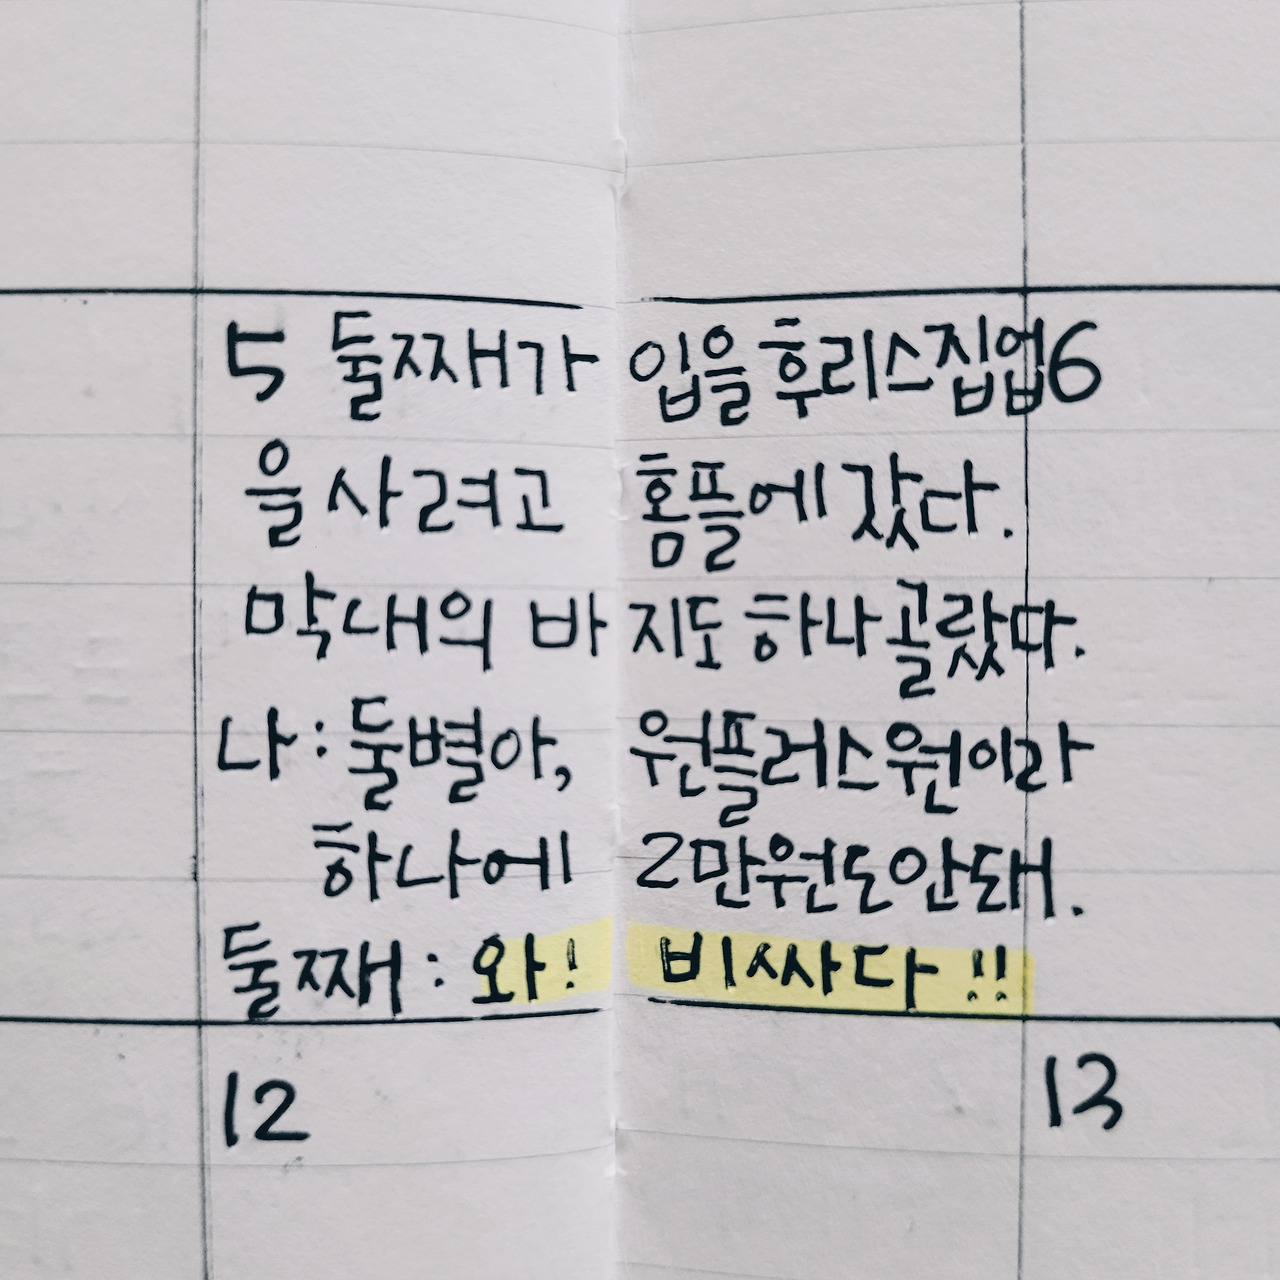 5 둘째가 입을 후리스집업6
을 사려고 홈플에 갔다.
막내의 바지도 하나 골랐다.
나 : 둘별아, 원플러스원이라
하나에 2만원도 안돼.
둘째 : 와! 비싸다!!
12 13